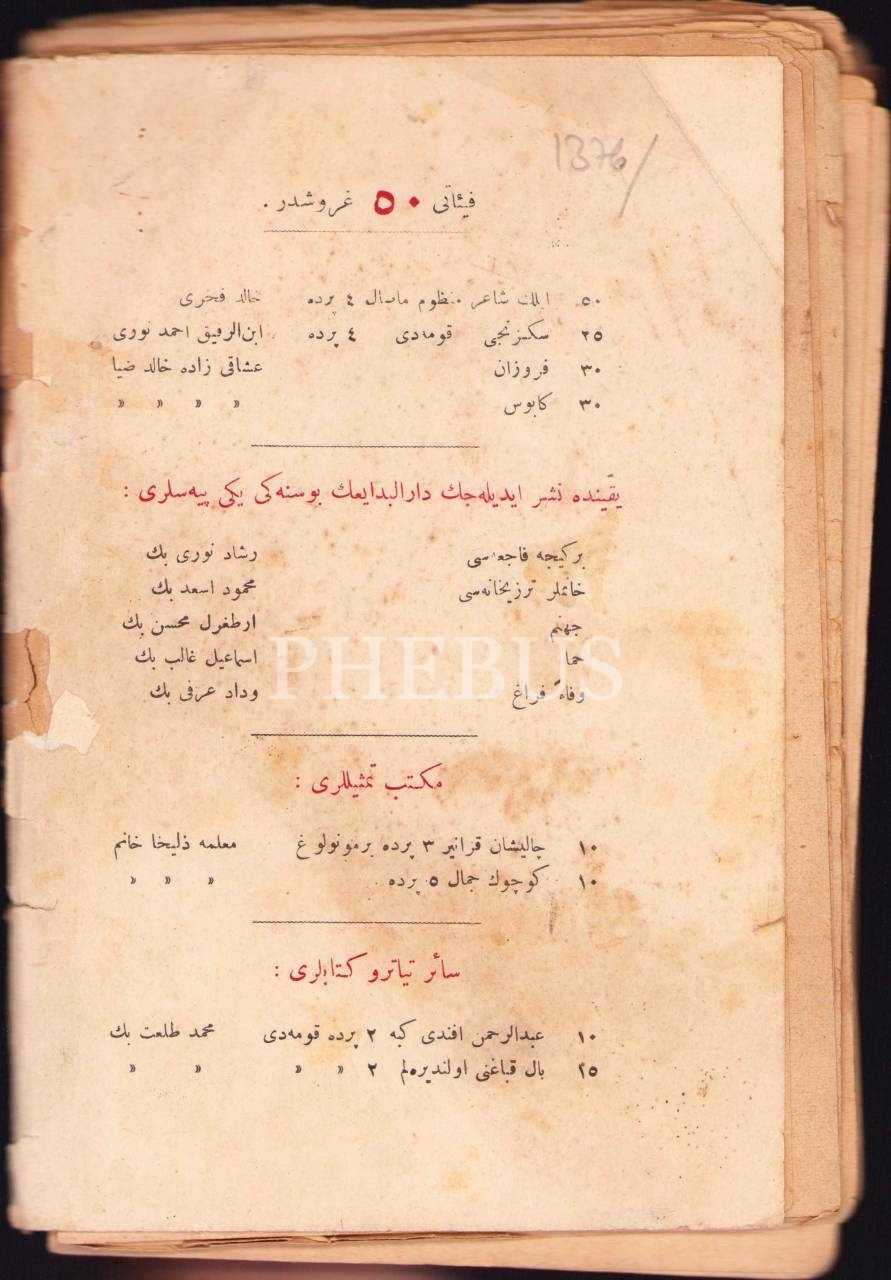 1376/
فیئاتی ۵۰ غروشدر .
۵۰ ایلك شاعر منظوم ماصال ٤ پرده خالد فخری
۲۵ سكزنجی قومه‌دی ٤ پرده ابن‌الرفیق احمد نوری
۳۰ فروزان عشاقی زاده خالد ضیا
۳۰ كابوس » » » »
یقینده نشر ایدیله‌جك دارالبدایعك بوسنه‌كی یكی پیه‌سلری :
بركیجه فاجعه‌سی رشاد نوری بك
خانملر ترزیخانه‌سی محمود اسعد بك
جهنم ارطغرل محسن بك
حما اسماعیل غالب بك
وفاءً فراغ وداد عرفی بك
PHEBUS
مكتب تمثیللری :
۱۰ چالیشان قزانیر ۳ پرده برمونولوغ معلمه ذلیخا خانم
۱۰ كوچوك جمال ۵ پرده » » »
سائر تیاترو كتابلری :
۱۰ عبدالرحمن افندی كبه ۲ پرده قومه‌دی محمد طلعت بك
۲۵ بال قباغنی اولندیره‌لم ۲ » » » »